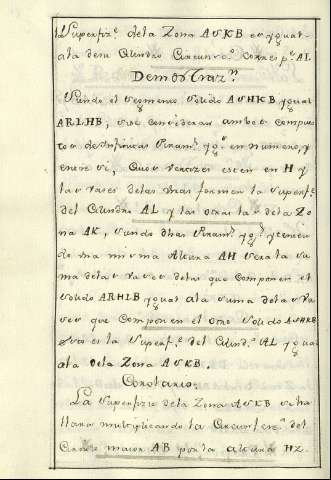 la Superfiz.e dela Zona ASKB es ygual-
ala de su Cilindro Circunsc.o corresp.te AL
Demostraz.n
Siendo el segmento solido ASHKB ygual
ARLHB, si se consideran ambos compues
tos de ynfinitas Piram.s yg.s en numero, y
entre si, Cuos vertizes esten en H y
las vases delas unas formen la superf.e
del Cilindro AL y las otras las dela Zo
na AK, siendo dhas Piram.s yg.s y tenien
do una misma Altura AH sera la su
ma delas vases delas que componen el
solido ARHLB ygual ala suma delas va
ses que componen el otro solido ASHKB
esto es la superf.e del Cilind.o AL ygual
ala dela Zona ASKB.
Corolario.
La Superfizie dela Zona ASKB se ha
llara multiplicando la Circunfer.a del
Circulo maior AB por la altura HZ.